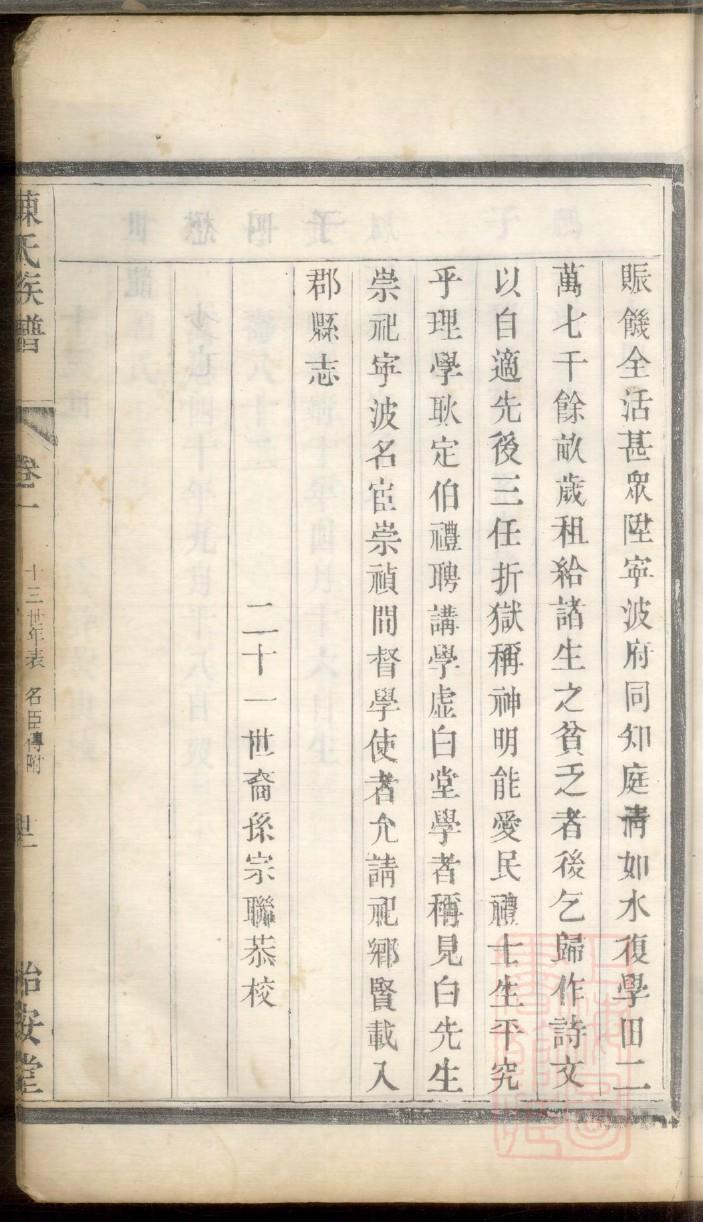 賑饑全活甚眾陞寧波府同知庭清如水復學田二
萬七千餘畝歲租給諸生之貧乏者後乞歸作詩文
以自適先後三任折獄稱神明能愛民禮士生平究
乎理學耿定伯禮聘講學虛白堂學者稱見白先生
崇祀寧波名宦崇禎間督學使者允請祀鄉賢載入
郡縣志
二十一世裔孫宗聯恭校
陳氏族譜 卷一 十三世年表 名臣傳附 怡安堂